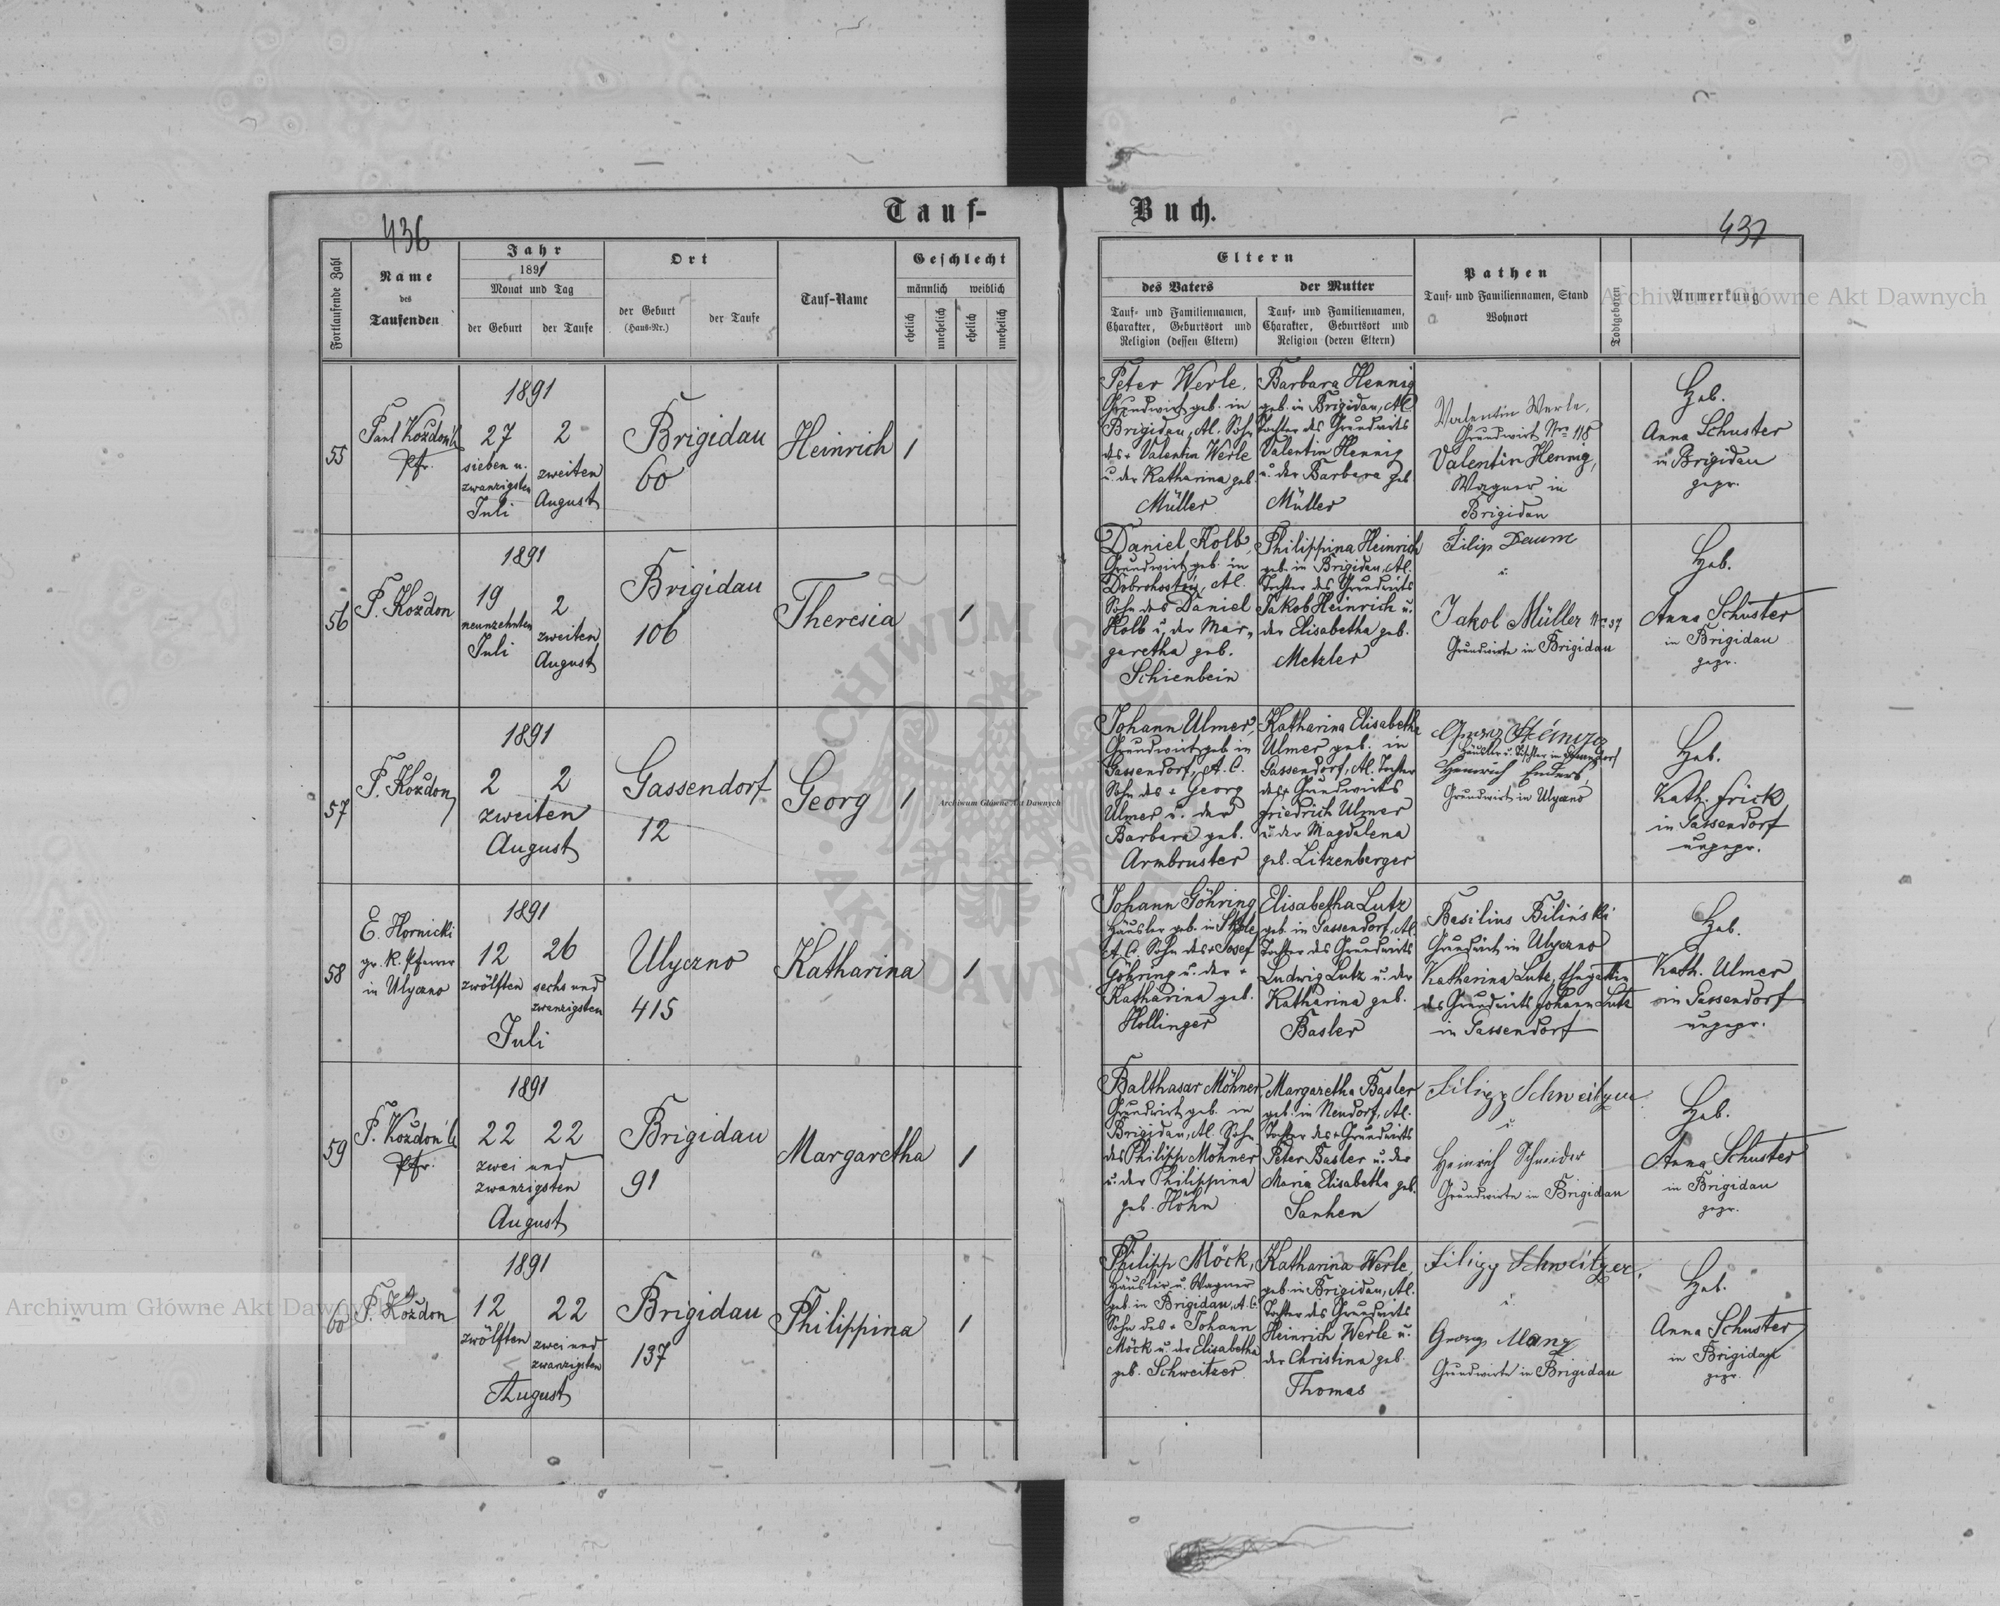 Tauf-
Buch.
436
437
Fortlaufende Zahl
Name
des
Taufenden
Jahr
1891
Monat und Tag
der Geburt
der Taufe
Ort
der Geburt
(Haus-Nr.)
der Taufe
Tauf-Name
Geschlecht
männlich
weiblich
ehelich
unehelich
ehelich
unehelich
Eltern
des Vaters
der Mutter
Tauf- und Familiennamen,
Charakter, Geburtsort und
Religion (dessen Eltern)
Tauf- und Familiennamen,
Charakter, Geburtsort und
Religion (deren Eltern)
Pathen
Tauf- und Familiennamen, Stand
Wohnort
Todtgeboren
Anmerkung
55
Pfr.
1891
27
2
sieben u.
zwanzigsten
Juli
zweiten
August
Brigidau
60
Heinrich
1
Peter Werle,
Grundwirt geb. in
Brigidau, A.C. Sohn
des + Valentin Werle
u. der Katharina geb.
Müller
Barbara Hennig
geb. in Brigidau, A.C.
Tochter des Grundwirts
Valentin Hennig
u. der Barbara geb.
Müller
Valentin Werle,
Grundwirt Nro 118
Valentin Hennig,
Wagner in
Brigidau
Heb.
Anna Schuster
in Brigidau
gepr.
56
P. Kozdon
1891
19
2
neunzehnten
Juli
zweiten
August
Brigidau
106
Theresia
1
Daniel Kolb,
Grundwirt geb. in
Dobrohostów, A.C.
Sohn des Daniel
Kolb u. der Mar-
garetha geb.
Schienbein
Philippina Heinrich
geb. in Brigidau, A.C.
Tochter des Grundwirts
Jakob Heinrich u.
der Elisabetha geb.
Metzler
Filip Daum
u.
Jakob Müller Nro 37
Grundwirte in Brigidau
Heb.
Anna Schuster
in Brigidau
gepr.
57
P. Kozdon
1891
2
2
zweiten
August
Gassendorf
12
Georg
1
Johann Ulmer,
Grundwirt geb. in
Gassendorf, A.C.
Sohn des + Georg
Ulmer u. der
Barbara geb.
Armbruster
Katharina Elisabetha
Ulmer geb. in
Gassendorf, A.C. Tochter
des + Grundwirts
Friedrich Ulmer
u. der Magdalena
geb. Litzenberger
Heinrich Enders
Grundwirt in Ulyczno
Heb.
Kath. Frick
in Gassendorf
ungepr.
58
E. Hornicki
gr. k. Pfarrer
in Ulyczno
1891
12
26
zwölften
sechs und
zwanzigsten
Juli
Ulyczno
415
Katharina
1
Johann Göhring
Häusler geb. in
A.C. Sohn des + Josef
Göhring u. der +
Katharina geb.
Hollinger
Elisabetha Lutz
geb. in Gassendorf, A.C.
Tochter des Grundwirts
Ludwig Lutz u. der
Katharina geb.
Basler
Basilius Biliński
Grundwirt in Ulyczno
Katharina Lutz, Ehegattin
des Grundwirts Johann Lutz
in Gassendorf
Heb.
Kath. Ulmer
in Gassendorf
ungepr.
59
Pfr.
1891
22
22
zwei und
zwanzigsten
August
Brigidau
91
Margaretha
1
Balthasar Möhner,
Grundwirt geb. in
Brigidau, A.C. Sohn
des Philipp Möhner
u. der Philippina
geb. Höhn
Margaretha Basler
geb. in Neudorf, A.C.
Tochter des + Grundwirts
Peter Basler u. der
Maria Elisabetha geb.
Filipp Schweitzer
u.
Heinrich Schneider
Grundwirte in Brigidau
Heb.
Anna Schuster
in Brigidau
gepr.
60
P. Kozdon
1891
12
22
zwölften
zwei und
zwanzigsten
August
Brigidau
137
Philippina
1
Philipp Möck,
Häusler u. Wagner
geb. in Brigidau, A.C.
Sohn des + Johann
Möck u. der Elisabetha
geb. Schweitzer
Katharina Werle,
geb. in Brigidau, A.C.
Tochter des Grundwirts
Heinrich Werle u.
der Christina geb.
Thomas
Filipp Schweitzer,
u.
Georg Manz
Grundwirte in Brigidau
Heb.
Anna Schuster
in Brigidau
gepr.
Archiwum Główne Akt Dawnych
Archiwum Główne Akt Dawnych
Archiwum Główne Akt Dawnych